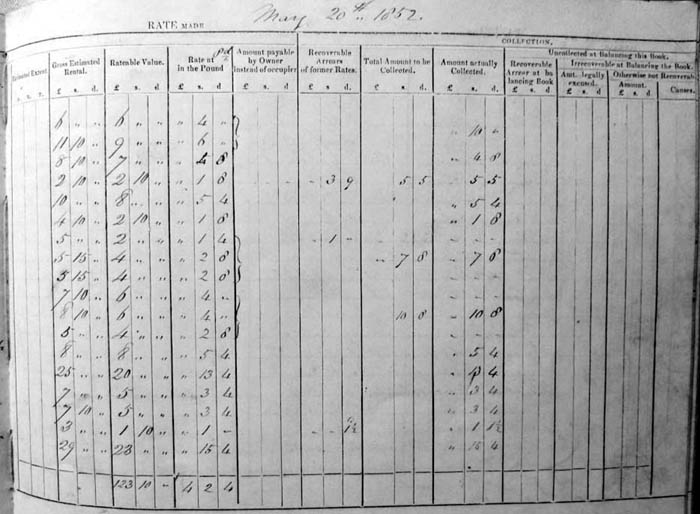 RATE MADE May 20th 1852.
COLLECTION.
Uncollected at Balancing this Book.
Estimated Extent Gross Estimated Rental. Rateable Value. Rate at pd in the Pound Amount payable by Owner instead of occupier Recoverable Arrears of former Rates. Total Amount to be Collected. Amount actually Collected. Recoverable Arrear at balancing Book Irrecoverable at Balancing the Book.
Amt. legally excused. Otherwise not Recovera
Amount. Causes.
£ s. d. £ s. d. £ s. d. £ s. d. £ s. d. £ s. d. £ s. d. £ s. d. £ s. d. £ s. d.
6 " " 6 " " " 4 "
11 10 " 9 " " " 6 " " 10 "
8 10 " 7 " " " 4 8 " 4 8
2 10 " 2 10 " " 1 8 - - 3 9 5 5 " 5 5
10 " " 8 " " " 5 4 " 5 4
4 10 " 2 10 " " 1 8 " 1 8
5 " " 2 " " " 1 4 - 1 -
5 15 " 4 " " " 2 8 - 7 8 " 7 8
5 15 " 4 " " " 2 8
7 10 " 6 " " " 4 "
8 10 " 6 " " " 4 " 10 8 " 10 8
5 " " 4 " " " 2 8
8 " " 8 " " " 5 4 " 5 4
25 " " 20 " " " 13 4 4
7 " " 5 " " " 3 4 " 3 4
7 10 " 5 " " " 3 4 " 3 4
3 " " 1 10 " " 1 - - - 1½ " 1 1½
29 " " 23 " " " 15 4 " 15 4
123 10 " 4 2 4